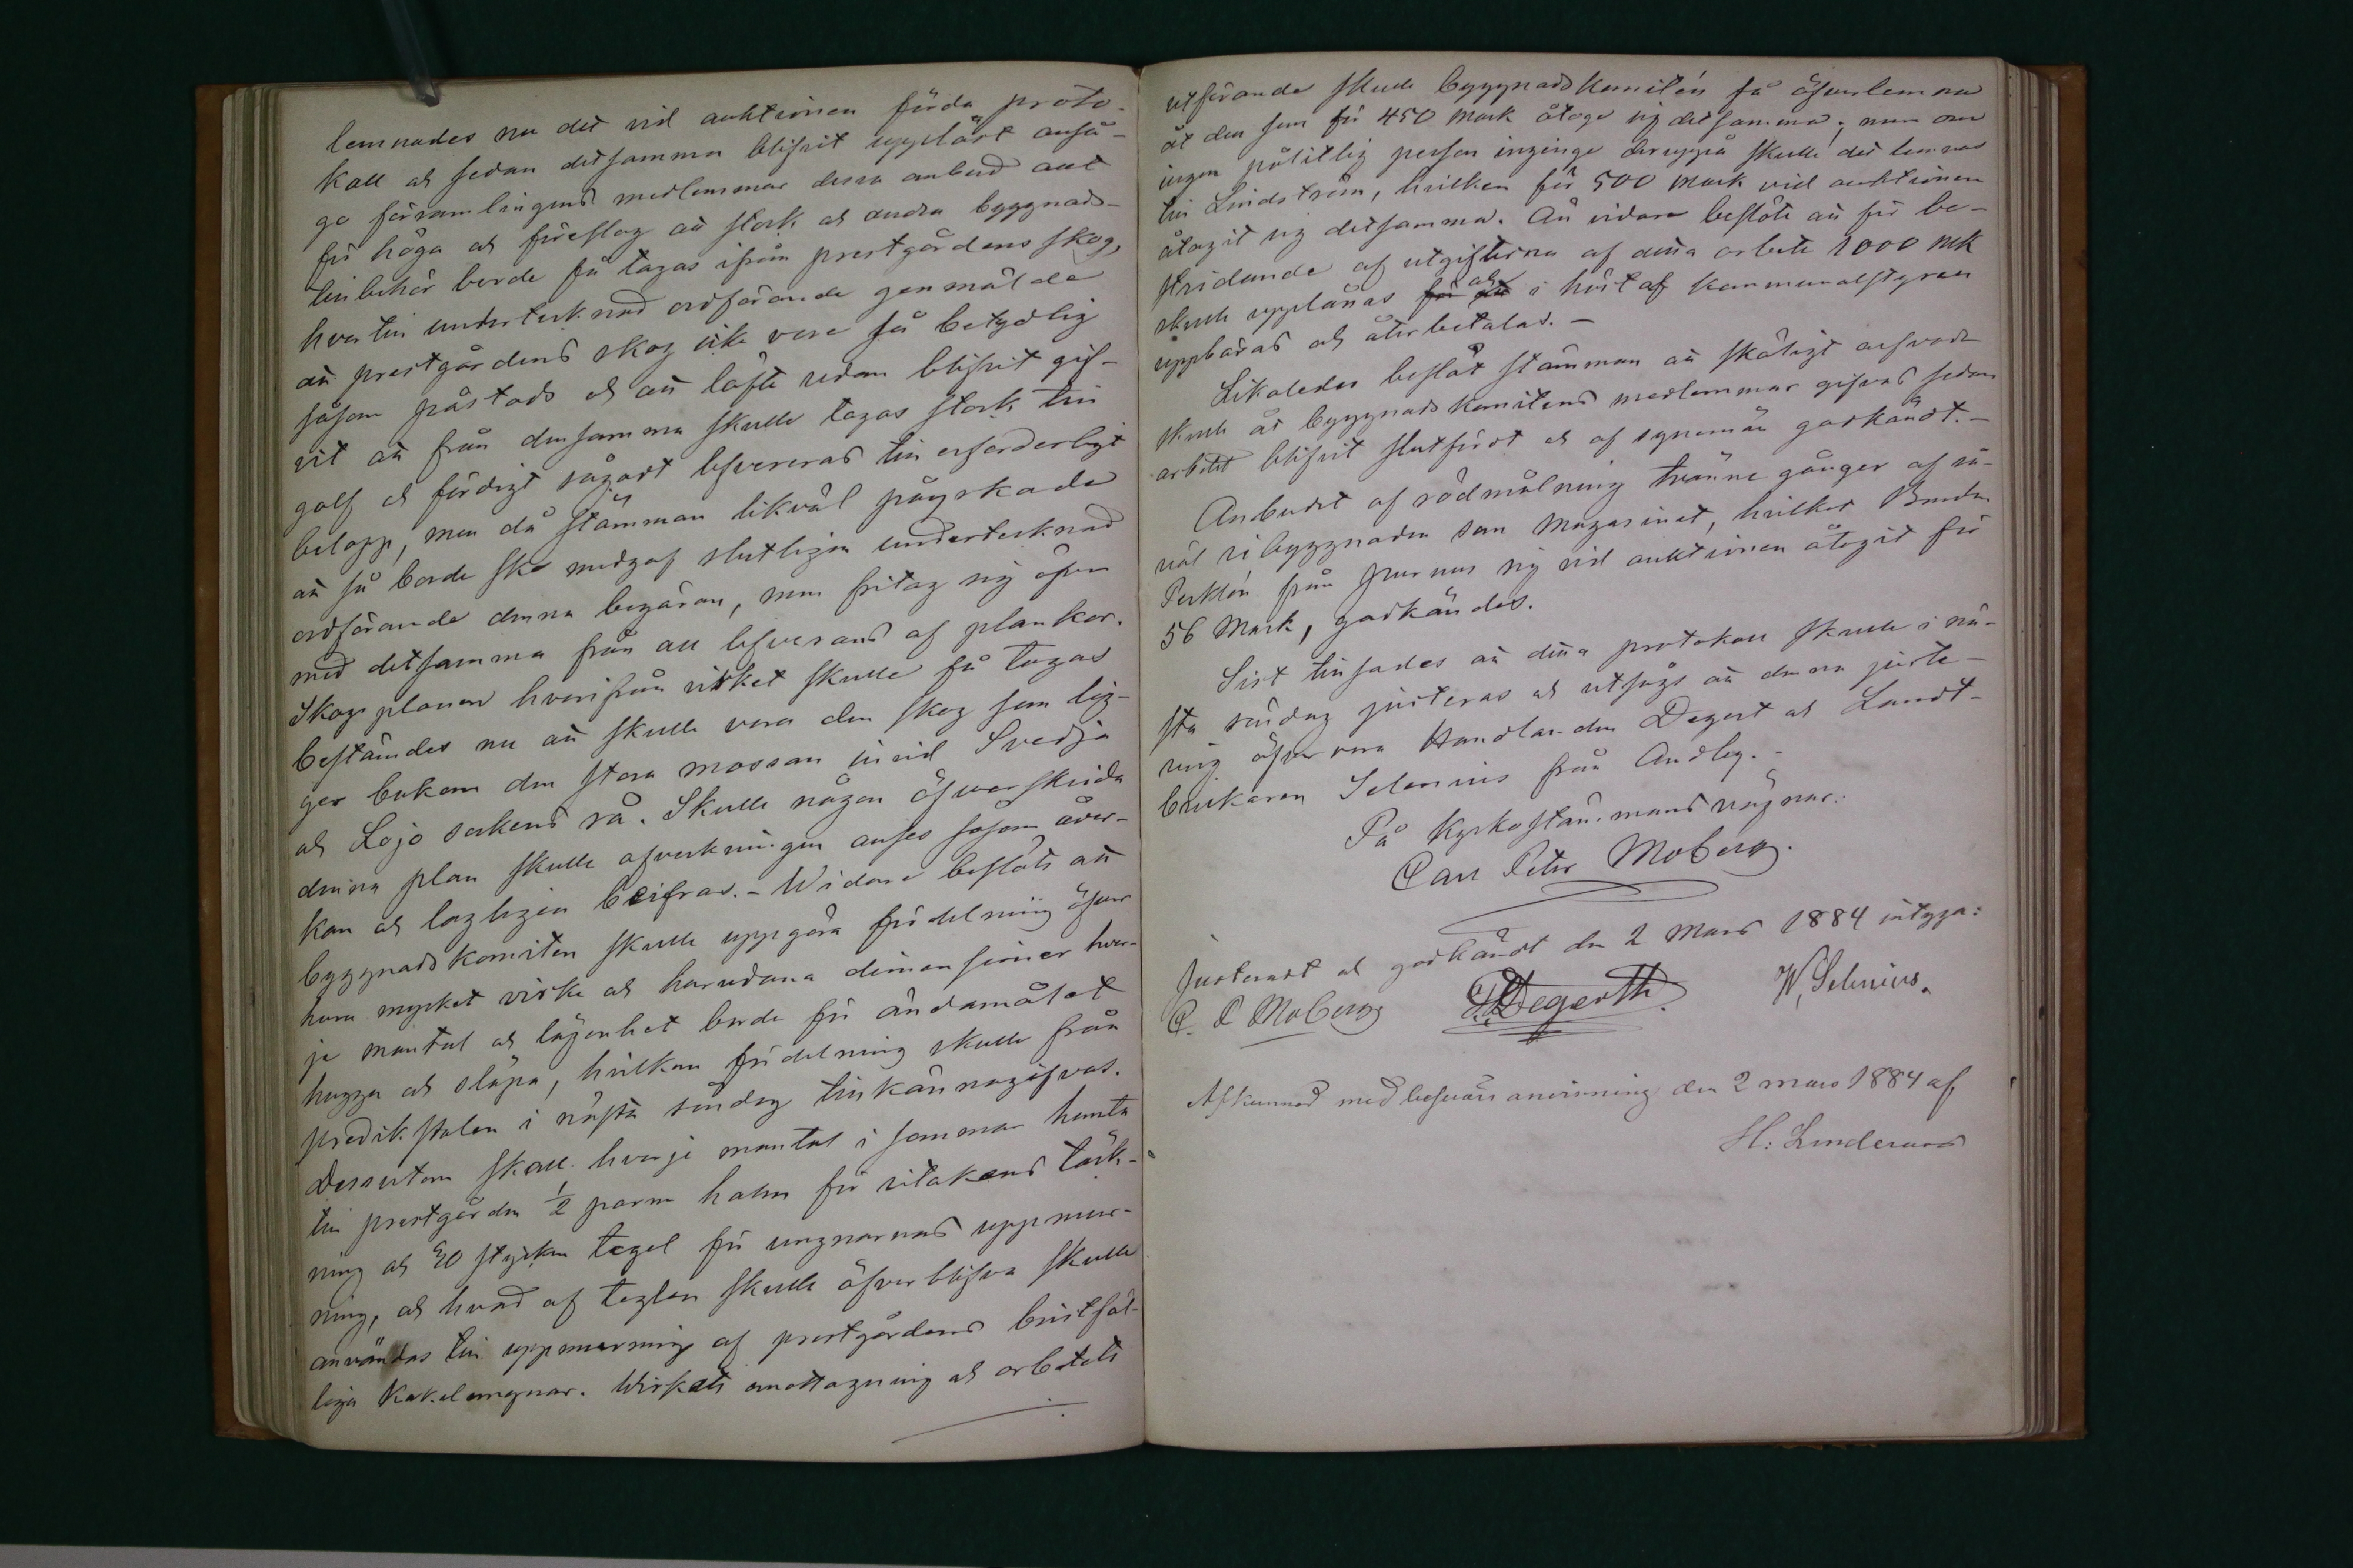 lemnades nu det vid auktionen förda proto-
koll och sedan detsamma blifvit uppläst anså-
go församlingens medlemmar dessa anbud allt
för höga och föreslog att stock och andra byggnads-
tillbehör borde få tagas ifrån prestgårdens skog,
hvartill undertecknad ordförande genmälde
att prestgårdens skog icke vore så betydlig
såsom påstods och att löfte redan blifvit gif-
vit att från densamma skulle tagas stock till
golf och färdigt sågadt lefvereras till erforderligt
belopp, men då stämman likväl påyrkade
att så borde ske medgaf slutligen undertecknad
ordförande denna begäran, men fritog sig äfven
med detsamma från all lefverans af plankor.
Skogsplanen hvarifrån virket skulle få tagas
bestämdes nu att skulle vara den skog som lig-
ger bakom den stora mossan invid Svedja
och Lojo sockens rå. Skulle någon öfverskrida
denna plan skulle afverkningen anses såsom åver-
kan och lagligen beifras. - Widare beslöts att
byggnadskomiten skulle uppgöra fördelning öfver
huru mycket virke och hurudana dimensioner hvar-
je mantal och lägenhet borde för ändamålet
hugga och släpa, hvilken fördelning skulle från
predikstolen i nästa söndag tillkännagifvas.
Dessutom skall hvarje mantal i sommar hemta
till prestgården ½ parm halm för ritakens täck-
ning och 40 stycken tegel för ungnarnas uppmur-
ning, och hvad af teglen skulle öfverblifva skulle
användas till uppmurning af prestgårdens bristfäl-
liga kakelungnar. Wirkets emottagning och arbetets
utförande skulle byggnadskomitén få öfverlemna
åt den som för 450 mark åtoge sig detsamma; men om
ingen pålitlig person inginge deruppå skulle det lemnas
till Lindström, hvilken för 500 mark vid auktionen
åtagit sig detsamma. Än vidare beslöts att för be-
stridande af utgifterna af detta arbete 1000 mk
skulle upplånas och i höst af kommunalstyren
uppbäras och återbetalas. -
Likaledes beslöt stämman att skäligt arfvode
skulle åt byggnadskomitens medlemmar gifvas sedan
arbetet blifvit slutfördt och af synemän godkändt. -
Anbudet af rödmålning tvänne gånger af så-
väl ribyggnaden som magasinet, hvilket Bonden
från Purnus sig vid auktionen åtagit för
56 mark, godkändes.
Sist tillsades att detta protokoll skulle i nä-
sta söndag justeras och utsågs att denna juste-
ring öfvervara Handlanden Degert och Landt-
brukaren Selenius från Andby. -
På Kyrkostämmans vägnar:
Carl Peter Moberg.
Justeradt och godkändt den 2 Mars 1884 intyga:
C. P. Moberg Degerth W. Selenius.
Afkunnad med besvärs anvisning den 2 mars 1884 af